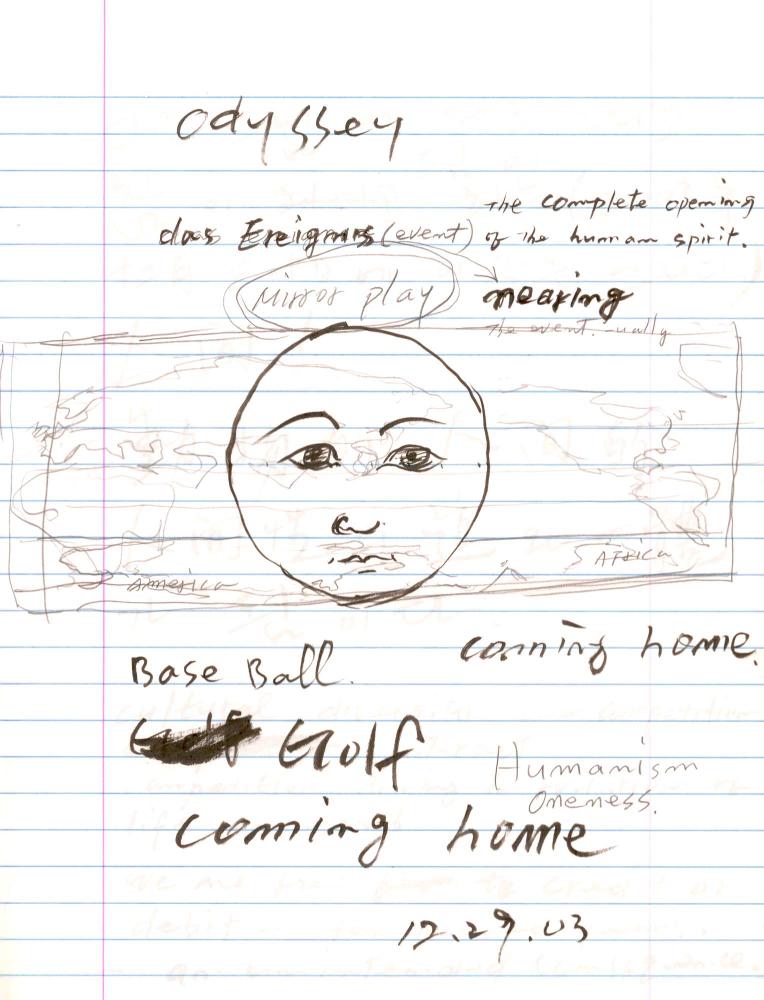 odyssey
the complete opening
das Ereignis (event) of the human spirit.
Mirror play nearing
The event.-ually
America
Africa
coming home.
Base Ball.
Golf Golf
Humanism
Oneness.
coming home
12.29.03